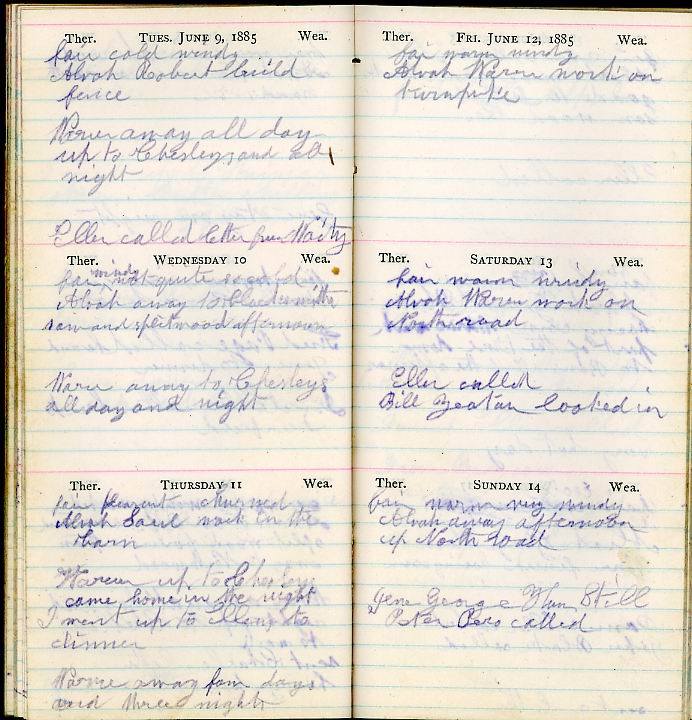 Ther. TUES. JUNE 9, 1885 Wea.
fair cold windy
Alvah Robert build
fence
away all day
up to Chesleys and all
night
Eller called letter from
Ther. WEDNESDAY 10 Wea.
windy
fair not quite so cold
Alvah away to Blacksmiths
saw and split wood afternoon
away to Chesleys
all day and night
Ther. THURSDAY 11 Wea.
fair pleasant churned
Alvah work on the
barn
up to Chesleys
came home in the night
I went up to Ellens to
dinner
away four days
and three nights
Ther. FRI. JUNE 12, 1885 Wea.
fair warm windy
Alvah Warren work on
turnpike
Ther. SATURDAY 13 Wea.
fair warm windy
Alvah Warren work on
North road
Eller called
Bill looked in
Ther. SUNDAY 14 Wea.
fair warm very windy
Alvah away afternoon
up North road
Gene George
Peter called